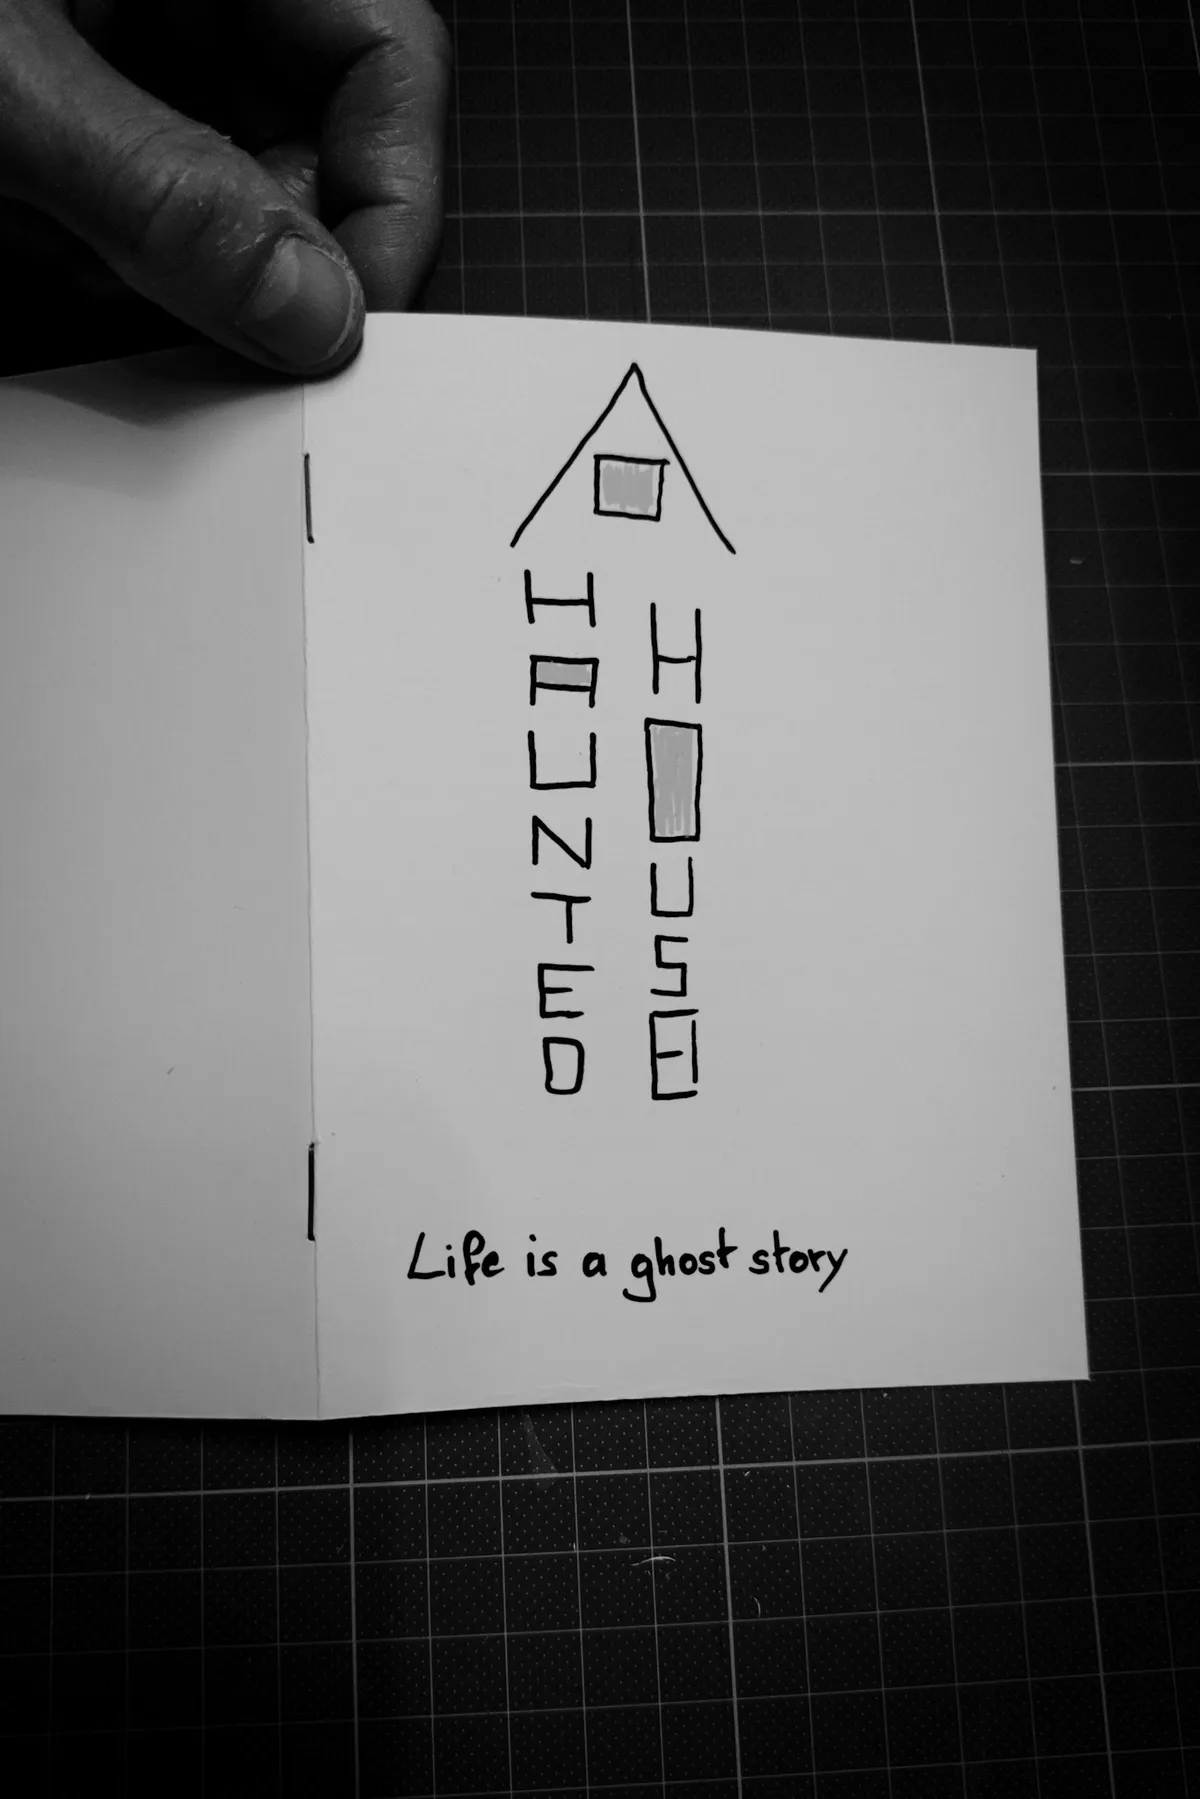 HAUNTED
HOUSE
Life is a ghost story